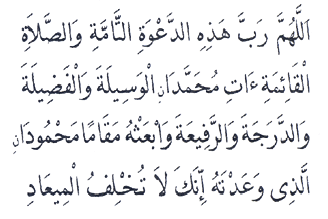 اَللَّهُمَّ رَبَّ هَذِهِ الدَّعْوَةِ التَّامَّةِ وَالصَّلَاةِ
الْقَائِمَةِ ءَاتِ مُحَمَّدَانِ الْوَسِيلَةَ وَالْفَضِيلَةَ
وَالدَّرَجَةَ وَالرَّفِيعَةَ وَابْعَثْهُ مَقَامًا مَحْمُودَانِ
الَّذِى وَعَدْتَهُ إِنَّكَ لَا تُخْلِفُ الْمِيعَادِ